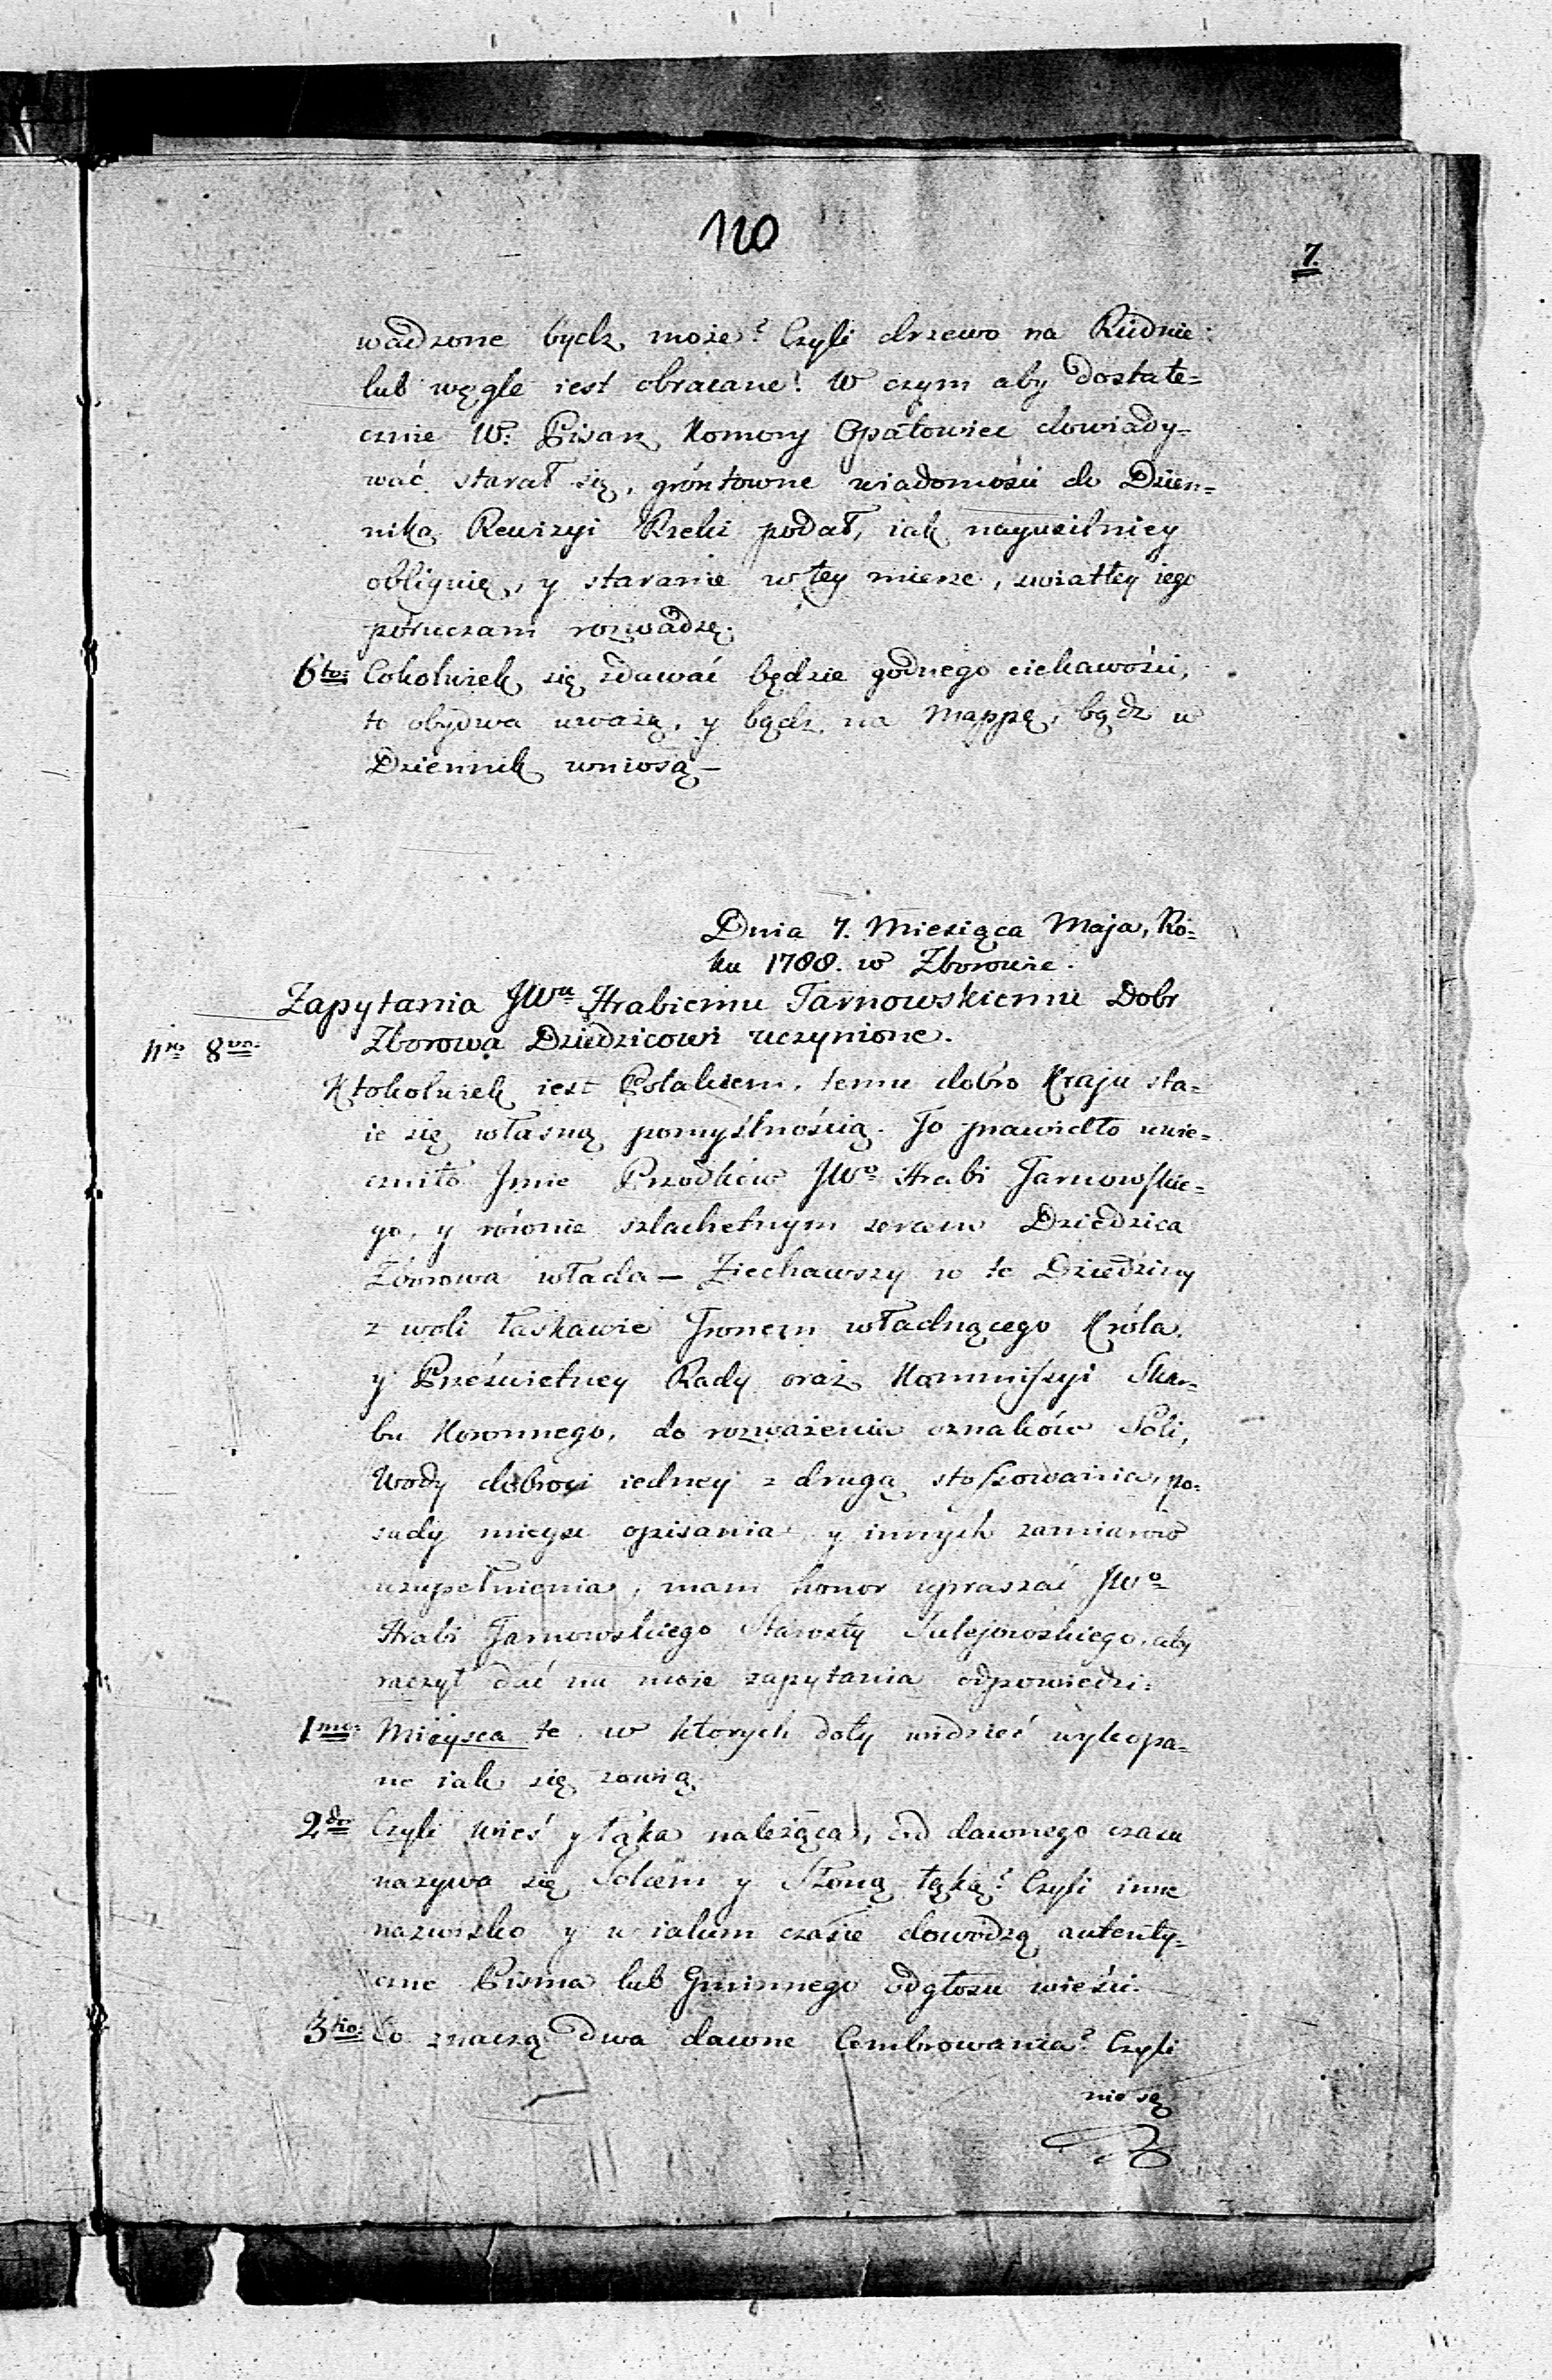 110
7.
wadzone bydz może? Czyli drzewo na Rudnie
lub węgle iest obracane! W czym aby dostate=
cznie W: Pisarz Komory Opatowiec dowiady=
wać starał się, gróntowne wiadomości do Dzien=
nika Rewizyi Rzeki podał, iak nayusilniey
obliguię, y staranie w tey mierze, światłey iego
poruczam rozwadze.
6to: Cokolwiek się zdawać będzie godnego ciekawości,
to obydwa uważą, y bądz na Mappę, bądz w
Dziennik wniosą —
Dnia 7. Miesiąca Maja, Ro=
ku 1788. w Zborowie.
Zapytania JWu Hrabiemu Tarnowskiemu Dobr
Nro 8vo. Zborowa Dziedzicowi uczynione.
Ktokolwiek iest Polakiem, temu dobro Kraju sta=
ie się własną pomyślnością. To prawidło uwie=
czniło Imie Przodków JWo Hrabi Tarnowskie=
go, y równie szlachetnym sercem Dziedzica
Zborowa włada — Ziechawszy w te Dziedziny
z woli łaskawie Tronem władnącego Króla,
y Prześwietney Rady oraz Kommissyi Skar=
bu Koronnego, do rozważenia oznaków Soli,
Wody dobroci iedney z drugą stossowania, po=
sady mieysc opisania, y innych zamiarów
uzupełnienia, mam honor upraszać JWo
Hrabi Tarnowskiego Starosty Sulejowskiego, aby
raczył dać na moie zapytania odpowiedzi:
1mo: Mieysca te w ktorych doły widzieć wykopa=
ne iak się zowią.
2do Czyli Wieś y łąka należąca, od dawnego czasu
nazywa się Solcem y Słoną łąką? Czyli inne
nazwisko y w iakim czasie dowodzą autenty=
czne Pisma lub Gminnego odgłosu wieści.
3tio: Co znaczą dwa dawne Cembrowania? Czyli
nie są